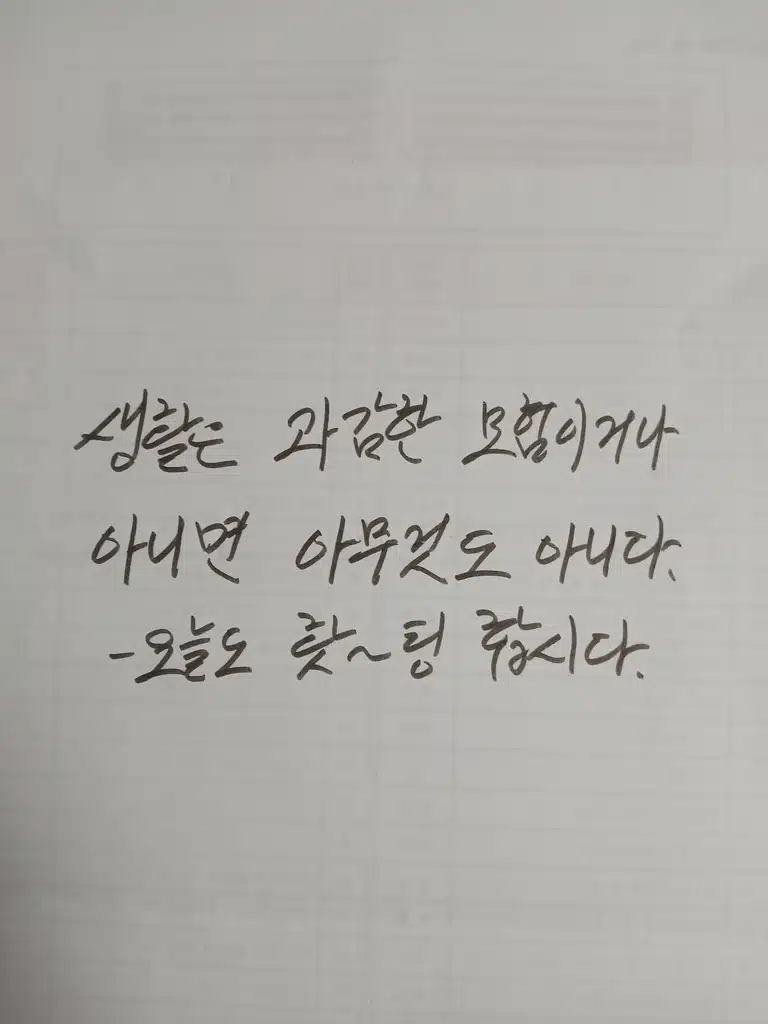 생활은 과감한 모험이거나
아니면 아무것도 아니다.
-오늘도 홧~팅 합시다.